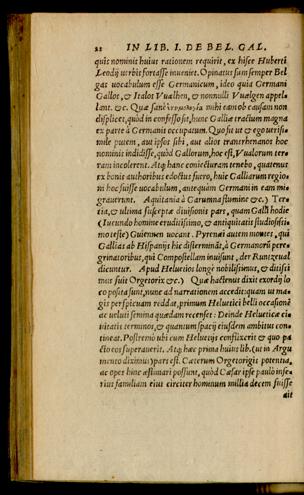 22 IN LIB. I. DE BEL. GAL.
quis nominis huius rationem requirit, ex hisce Huberti
Leodij uerbis fortasse inueniet. Opinatus sum semper Bel
gas uocabulum esse Germanicum, ideo quia Germani
Gallos, & Italos Vualhen, & nonnulli Vualgen appel-
lant. &c. Quæ sanè mihi eam ob causam non
displicet, quòd in confesso sit, hunc Galliæ tractum magna
ex parte à Germanis occupatum. Quo fit ut & ego uerisi-
mile putem, aut ipsos sibi, aut alios transrhenanos hoc
nominis indidisse, quòd Gallorum, hoc est, Vualorum ter-
ram incolerent. Atq; hanc coniecturam tenebo, quatenus
ex bonis authoribus edoctus fuero, huic Galliarum regio-
ni hoc fuisse uocabulum, antequàm Germani in eam mi-
grauerunt. Aquitania à Garumna flumine &c.) Ter-
tia, & ultima susceptæ diuisionis pars, quam Galli hodie
(iucundo homine eruditissimo, & antiquitatis studiosissi-
mo teste) Guiennen uocant. Pyrenæi autem montes, qui
Gallias ab Hispanijs hic disterminãt, à Germanorũ pere-
grinatoribus, qui Compostellam inuisunt, der Runtzeual
dicuntur. Apud Heluetios longè nobilissimus, & ditissi
mus fuit Orgetorix &c.) Quæ hactenus dixit exordij lo
co posita sunt, nunc ad narrationem accedit quam ut ma-
gis perspicuam reddat, primum Heluetici belli occasionẽ
ac ueluti semina quædam recenset: Deinde Heluetiæ ci-
uitatis terminos, & quantum spacij eiusdem ambitus con-
tineat. Postremò ubi cum Heluetijs conflixerit & quo pa
cto eos superauerit. Atq; hæc prima huius lib. (ut in Argu
mento diximus) pars est. Cæterum Orgetorigis potentia,
ac opes hinc æstimari possunt, quòd Cæsar ipse paulo infe-
rius familiam eius circiter hominum millia decem fuisse
ait